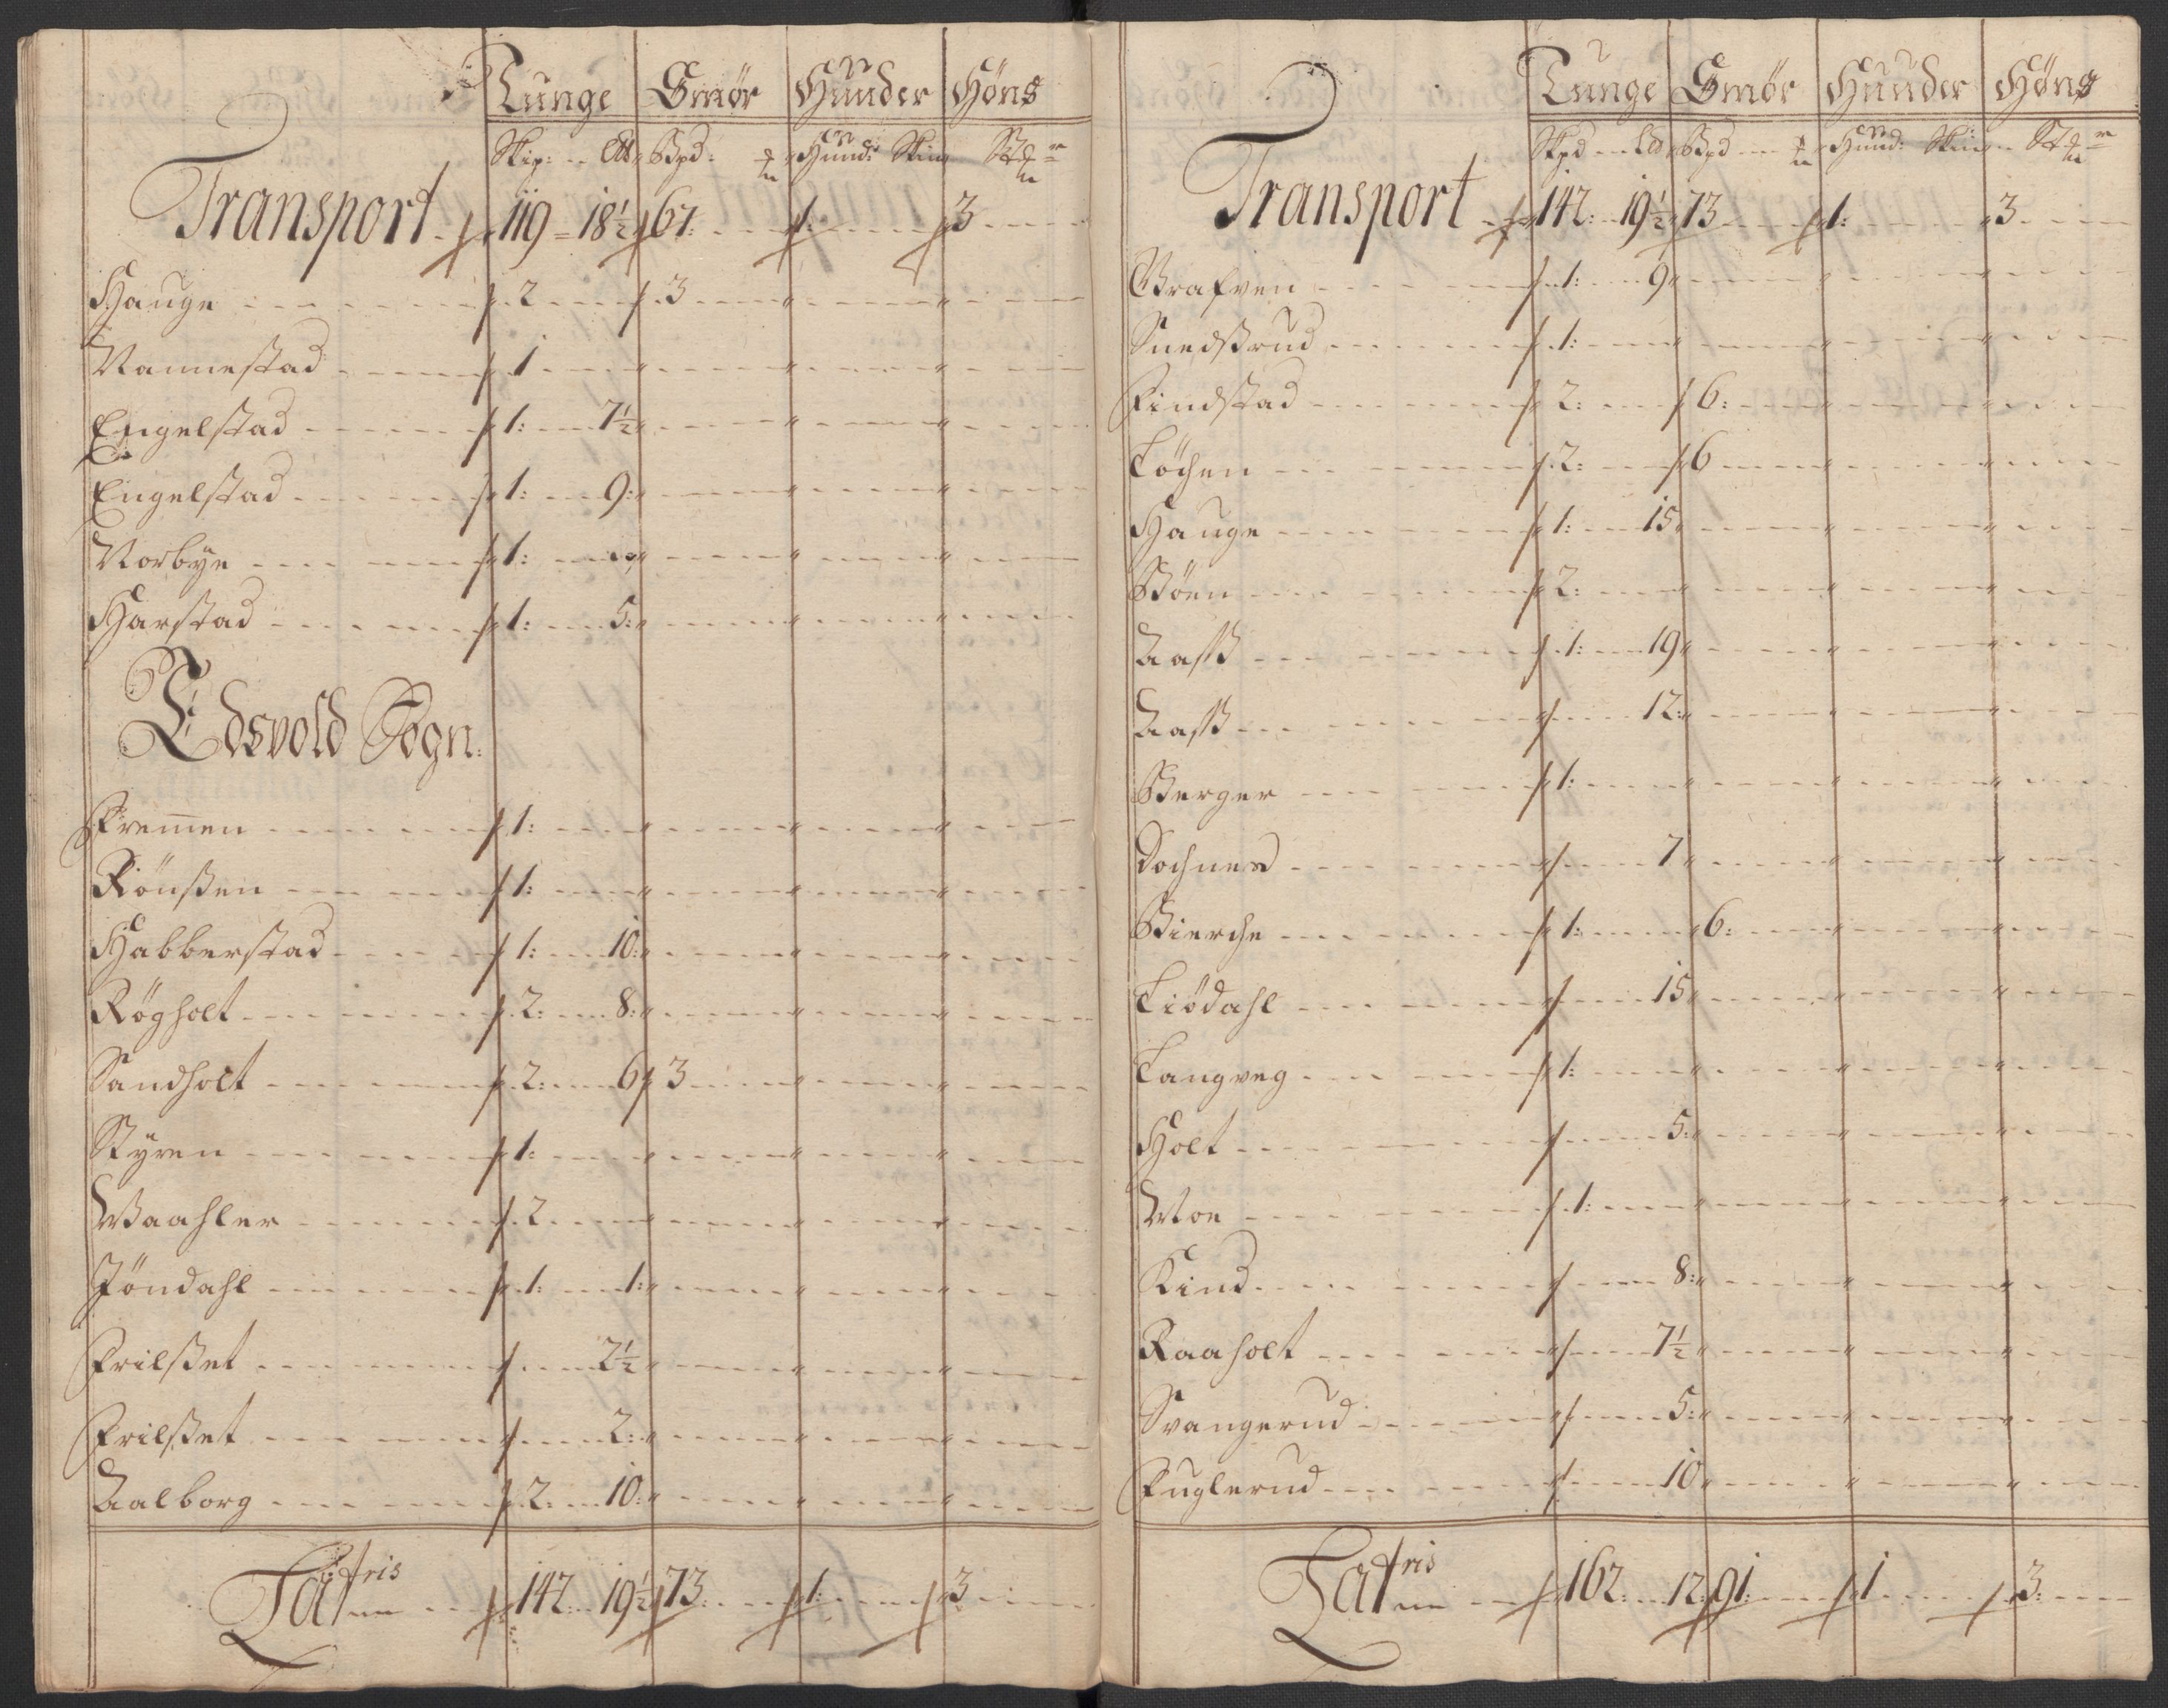 Tunge Smør Huuder Høns
Skip: Ld Bpd: Huud: Skin St
Transport 119 18½ 67: 1: 3
Hauge 2 3
Nannestad 1
Engelstad 1: 7½
Engelstad 1: 9:
Norbye 1:
Harstad 1: 5:
Edsvold Sogn:
Fremen 1:
Rönßen 1:
Habberstad 1: 10:
Røgholt 2: 8:
Sandholt 2: 6 3
Styren 1:
Waahler 2
Jöndahl 1: 1:
Frilßet 2½
Frilßet 2:
Aalborg 2: 10:
Latris 142: 19½ 73: 1: 3
Tunge Smør Huuder Høns
Skpd Ld Bpd Huud: Skin St
Transport 142: 19½ 73 1: 3
Grafven 1: 9
Snedßrud 1:
Findstad 2: 6:
Löchen 2: 6
Hauge 1: 15
Böen 2:
Aaß 1: 19
Aaß 12:
Berger 1:
Dochnes 7
Bierche 1: 6:
Liödahl 15
Langveg 1:
Holt 5:
Moe 1:
Kind 8:
Raaholt 7½
Svangerud 5:
Fuglerud 10
Latris 162: 12: 91: 1 3: